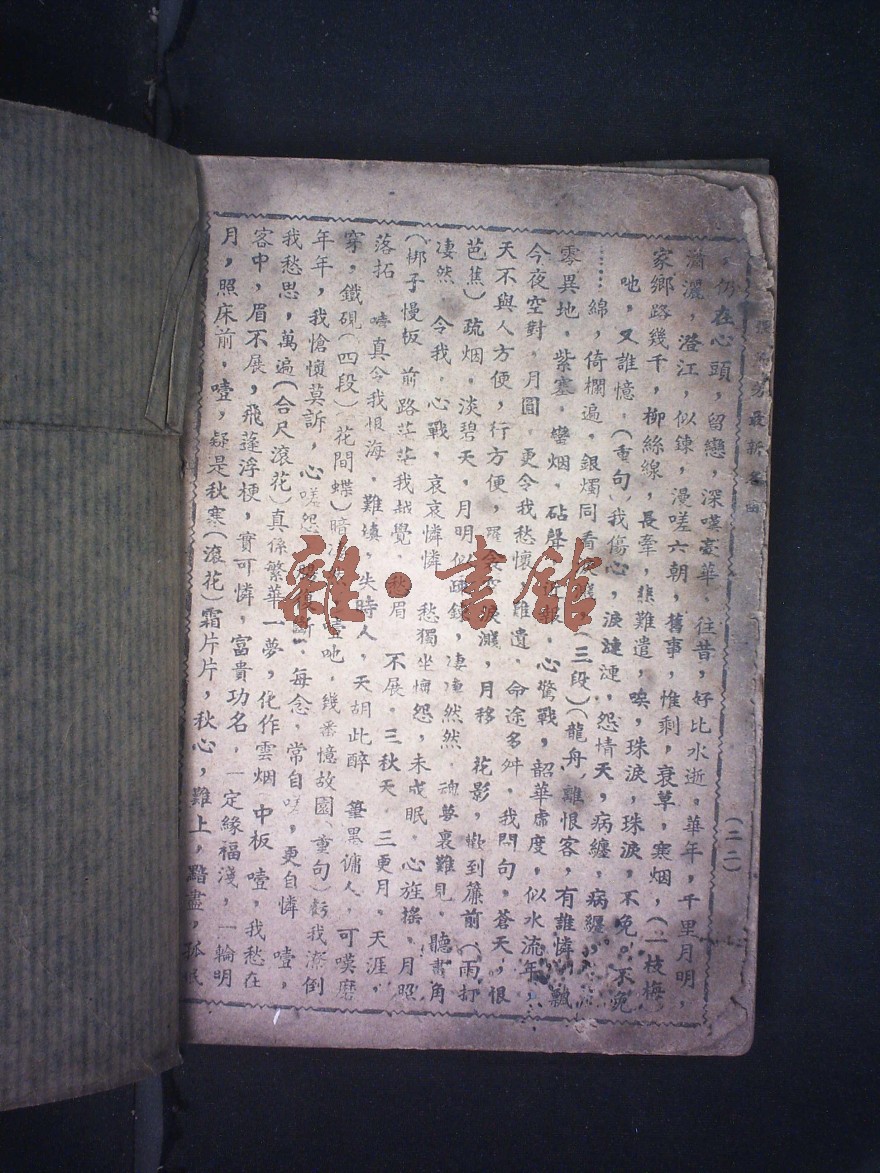 最新名曲
(二二)
仍在心頭，留戀，深嘆豪華，往昔，好比水逝。華年，千里月明，
瀟灑，澄江，似鍊，漫嗟六朝，舊事，惟剩，衰草，寒烟，(一枝梅
家鄉路幾千，柳絲線，長牽，悲難遣，唉，珠淚，珠淚，不免。不免
吔，又誰憶，(重句)我傷心，淚漣漣，怨情天，病纏，病纏，
……綿，倚欄遍，銀燭同看(三段)(龍舟)離恨客，有誰憐，飄
零異地，紫塞，蠻烟，砧聲報，心驚戰，韶華虛度，似水流年，
今夜空對，月圓，更令我愁懷難遣，命途多舛，我問句，蒼天，恨
天不與人方便，行方便，羅衾淚濺，月移　花影，撳到簾前(雨打
芭蕉)疏烟，淡碧天，月明似鏡，凄凄然然，魂夢裏難見，聽畫角
凄然　令我，心戰，哀哀憐憐　愁獨坐懨怨，未成眠，心旌搖，月照
(梆子慢板　前路茫茫我越覺，愁眉　不展，三秋天，三更月，天涯，
落拓　噎真令我恨海，難填，失時人，天胡此醉　筆墨傭人，可嘆磨
穿，鐵硯(四段)(花間蝶)暗噎吔，幾番憶故園(重句)虧我潦倒
年年，我愴懷莫訴，心嗟怨斷，每念，常自嗟，更自憐　噎，
我愁思，萬遍(合尺滾花)真係繁華一夢，化作雲烟　中板　噎，我愁在
客中，眉不展，飛蓬浮梗，實可憐，富貴功名，一定緣福淺，一輪明
月，照床前，噎，疑是秋寒(滾花)霜片片，秋心，難上，黯盡，孤
雜·書館